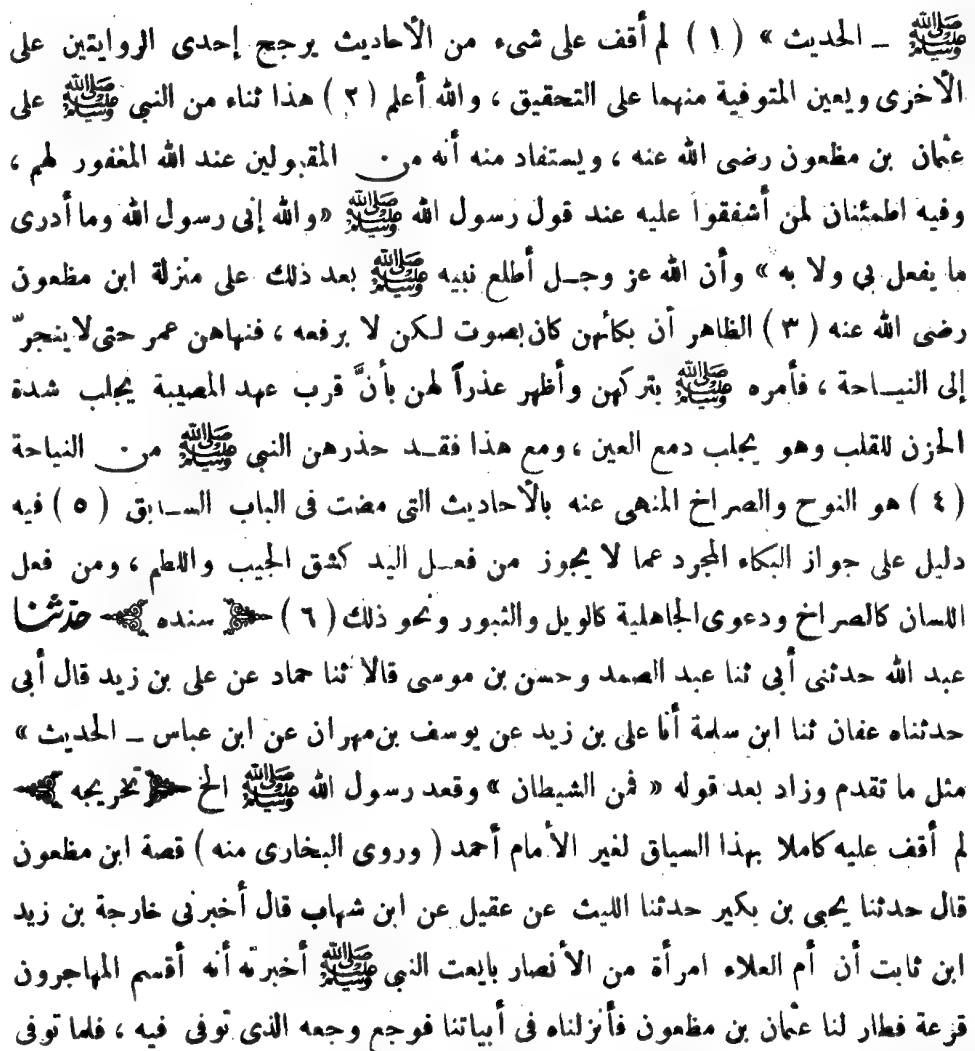 ﷺ ـ الحديث » ( ١ ) لم أقف على شىء من الأحاديث يرجح إحدى الروايتين على
الأخرى ويعين المتوفية منهما على التحقيق ، والله أعلم ( ٢ ) هذا ثناء من النبى ﷺ على
عثمان بن مظعون رضى الله عنه ، ويستفاد منه أنه من المقبولين عند الله المغفور لهم ،
وفيه اطمئنان لمن أشفقوا عليه عند قول رسول الله ﷺ «والله إنى رسول الله وما أدرى
ما يفعل بى ولا به » وأن الله عز وجـل أطلع نبيه ﷺ بعد ذلك على منزلة ابن مظعون
رضى الله عنه ( ٣ ) الظاهر أن بكائهن كان بصوت لـكن لا برفعه ، فنهاهن عمر حتى لا ينجرّ
إلى النيـاحة ، فأمره ﷺ بتركهن وأظهر عذراً لهن بأنَّ قرب عهد المصيبة يجلب شدة
الحزن للقلب وهو يجلب دمع العين ، ومع هذا فقـد حذرهن النبى ﷺ من النياحة
( ٤ ) هو النوح والصراخ المنهى عنه بالأحاديث التى مضت فى الباب السـابق ( ٥ ) فيه
دليل على جواز البكاء المجرد عما لا يجوز من فعـل اليد كشق الجيب واللطم ، ومن فعل
اللسان كالصراخ ودعوى الجاهلية كالويل والثبور ونحو ذلك ( ٦ ) ﴿ سنده ﴾ حدّثنا
عبد الله حدثنى أبى ثنا عبد الصمد وحسن بن موسى قالا ثنا حماد عن على بن زيد قال أبى
حدثناه عفان ثنا ابن سلمة أنا على بن زيد عن يوسف بن مهران عن ابن عباس ـ الحديث »
مثل ما تقدم وزاد بعد قوله « فمن الشيطان » وقعد رسول الله ﷺ الخ ﴿ تخريجه ﴾
لم أقف عليه كاملا بهذا السياق لغير الأمام أحمد ( وروى البخارى منه ) قصة ابن مظعون
قال حدثنا يحيى بن بكير حدثنا الليث عن عقيل عن ابن شهاب قال أخبرنى خارجة بن زيد
ابن ثابت أن أم العلاء امرأة من الأنصار بايعت النبى ﷺ أخبرته أنه أقسم المهاجرون
قرعة فطار لنا عثمان بن مظعون فأنزلناه فى أبياتنا فوجع وجعه الذى توفى فيه ، فلما توفى